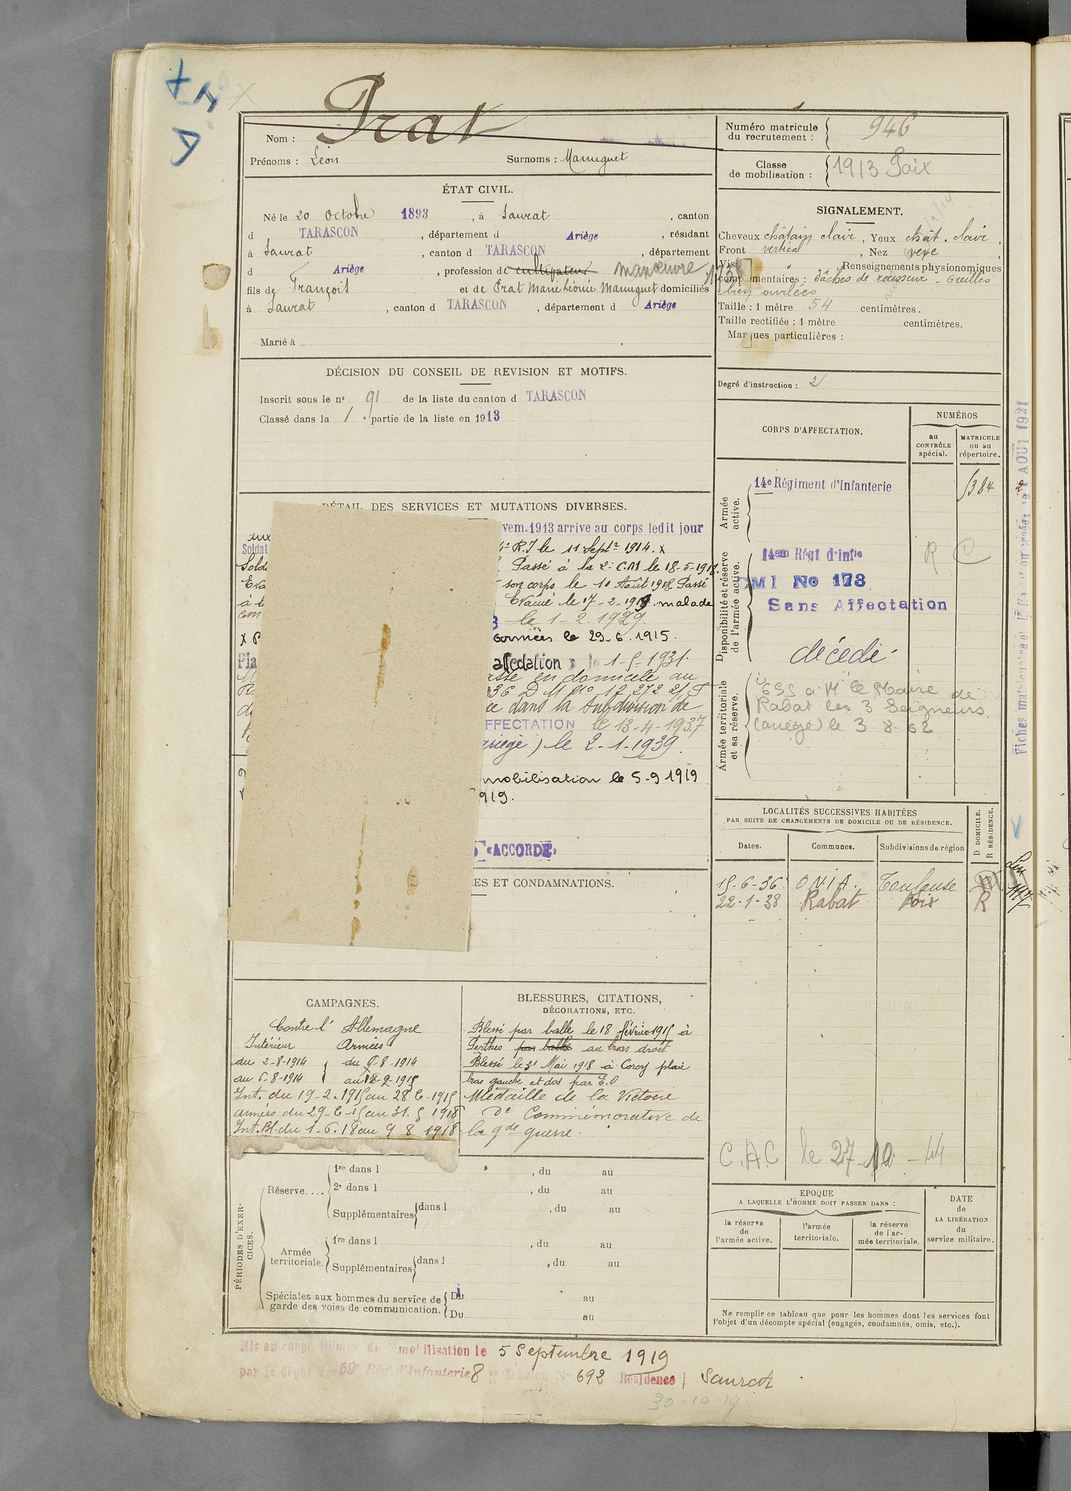 Nom : Prat
Prénoms : Léon Surnoms : Manuguet
ÉTAT CIVIL.
Né le 20 octobre 1893, à Saurat, canton
d TARASCON, département d Ariège, résidant
à Saurat, canton d TARASCON, département
d Ariège, profession de cultivateur manœuvre
fils de François et de Prat Marie Louise Manuguet domiciliés
à Saurat, canton d TARASCON, département d Ariège
Marié à
DÉCISION DU CONSEIL DE REVISION ET MOTIFS.
Inscrit sous le n° 91 de la liste du canton d TARASCON
Classé dans la 1 partie de la liste en 1913
DÉTAIL DES SERVICES ET MUTATIONS DIVERSES.
vem. 1913 arrive au corps ledit jour
R.I le 11 Septre 1914. x
Passé à la 2e C.M le 18-5-1918.
son corps le 10 Août 1918 Passé
Evacué le 17-2-1919 malade
le 1-2-1929.
armées le 29-6-1915.
affectation le 1-5-1931.
asse en domicile au
36 D M N° 12 272 2/S
ée dans la subdivision de
FFECTATION le 13-4-1937
ariège) le 2-1-1939.
mobilisation le 5-9 1919
919.
«ACCORDÉ»
ES ET CONDAMNATIONS.
CAMPAGNES.
Contre l'Allemagne
Intérieur Armées
du 2-8-1914 du 6-8-1914
au 6-8-1914 au 18-2-1915
Int. du 19-2-1915 au 28-6-1915
armées du 29-6-15 au 31.5 1918
Int. Bl. du 1-6-18 au 9 8 1918
BLESSURES, CITATIONS,
DÉCORATIONS, ETC.
Blessé par balle le 18 février 1915 à
Perthes par balle au bras droit
Blessé le 31 Mai 1918 à Corcy plaie
bras gauche et dos par E.O
Médaille de la Victoire
De Commémorative de
la gde guerre.
PÉRIODES D'EXERCICES.
Réserve.... 1re dans l , du au
2e dans l , du au
Supplémentaires dans l , du au
Armée territoriale. 1re dans l , du au
Supplémentaires dans l , du au
Spéciales aux hommes du service de garde des voies de communication. Du au
Du au
Numéro matricule du recrutement : 946
Classe de mobilisation : 1913 Foix
SIGNALEMENT.
Cheveux châtain clair, Yeux chât. clair,
Front vertical, Nez vexe,
Visage " Renseignements physionomiques
complémentaires : Tâches de rousseur - Oreilles
bien ourlées
Taille : 1 mètre 54 centimètres.
Taille rectifiée : 1 mètre centimètres.
Marques particulières :
Degré d'instruction : 2
CORPS D'AFFECTATION.
NUMÉROS
au CONTRÔLE spécial.
MATRICULE ou au répertoire.
Armée active.
14e Régiment d'Infanterie
Disponibilité et réserve de l'armée active.
14eme Régt d'Infie R C
DMI No 173
Sans Affectation
décédé
Armée territoriale et sa réserve.
ESS a Mr le Maire de
Rabat les 3 Seigneurs
(ariège) le 3-8-62
LOCALITÉS SUCCESSIVES HABITÉES
PAR SUITE DE CHANGEMENTS DE DOMICILE OU DE RÉSIDENCE.
Dates. Communes. Subdivisions de région D DOMICILE. R RÉSIDENCE.
15-6-36 O N I A. Toulouse
22-1-38 Rabat Foix R
C.A.C le 27 10 - 44
EPOQUE
A LAQUELLE L'HOMME DOIT PASSER DANS :
la réserve de l'armée active.
l'armée territoriale.
la réserve de l'armée territoriale.
DATE de LA LIBÉRATION du service militaire.
Ne remplir ce tableau que pour les hommes dont les services font
l'objet d'un décompte spécial (engagés, condamnés, omis, etc.).
mobilisation le 5 Septembre 1919
par le dépôt du 59e Régt d'Infanterie 8 N° 692 Résidence Saurat